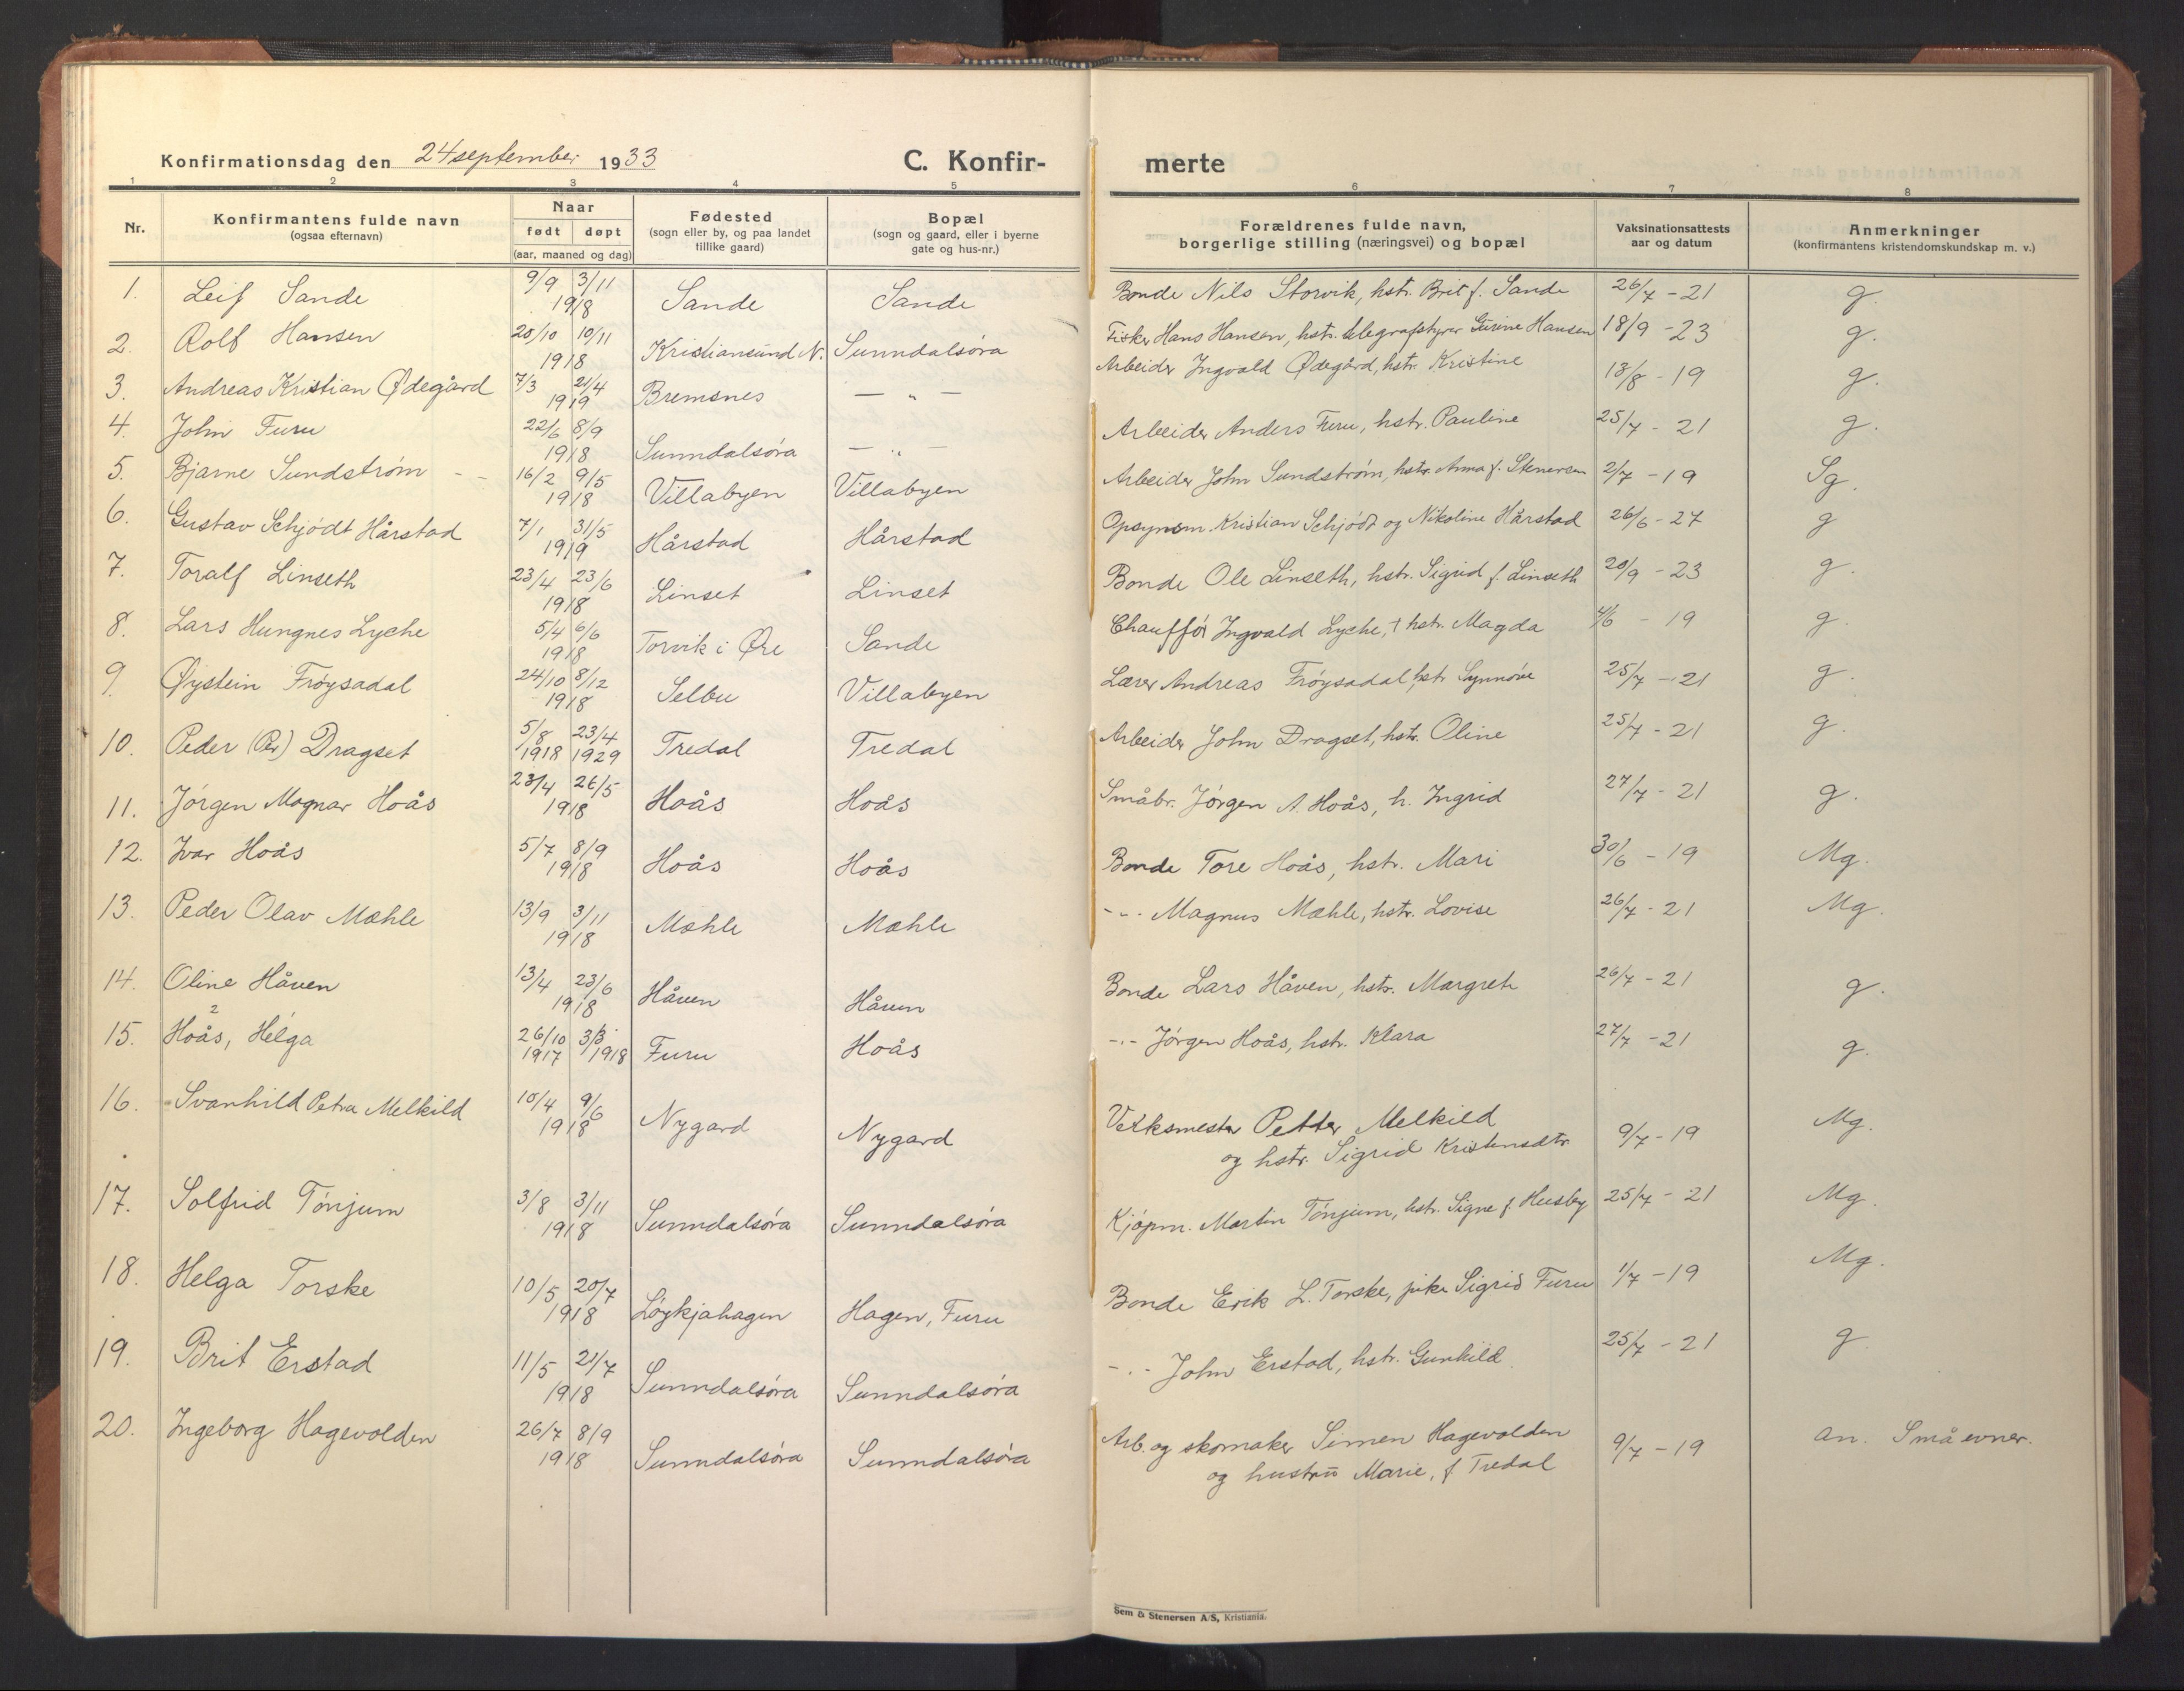 Konfirmationsdag den 24 september 1933
C. Konfir- merte
1 2 3 4 5 6 7 8
Nr.
Konfirmantens fulde navn
(ogsaa efternavn)
Naar
født døpt
(aar, maaned og dag)
Fødested
(sogn eller by, og paa landet
tillike gaard)
Bopæl
(sogn og gaard, eller i byerne
gate og hus-nr.)
Forældrenes fulde navn,
borgerlige stilling (næringsvei) og bopæl
Vaksinationsattests
aar og datum
Anmerkninger
(konfirmantens kristendomskundskap m. v.)
1. Leif Sande 9/9 3/11 1918 Sande Sande Bonde Nils Storvik, hstr. Brit f. Sande 26/7 - 21 g.
2. Rolf Hansen 20/10 10/11 1918 Kristiansund N. Sunndalsøra Fisker Hans Hansen, hstr. telegrafstyrer Gurine Hansen 18/9 - 23 g.
3. Andreas Kristian Ødegård 7/3 21/4 1919 Bremsnes — „ — Arbeider Ingvald Ødegård, hstr. Kristine 13/8 - 19 g.
4. John Furu 22/6 8/9 1918 Sunndalsøra — „ — Arbeider Anders Furu, hstr. Pauline 25/7 - 21 g.
5. Bjarne Sundstrøm 16/2 9/5 1918 Villabyen Villabyen Arbeider John Sundstrøm, hstr. Anna f. Stenersen 2/7 - 19 Sg.
6. Gustav Schjødt Hårstad 7/1 31/5 1919 Hårstad Hårstad Opsynsm. Kristian Schjødt og Nikoline Hårstad 26/6 - 27 g
7. Toralf Linseth 23/4 23/6 1918 Linset Linset Bonde Ole Linseth, hstr. Sigrid f. Linseth 20/9 - 23 g.
8. Lars Hungnes Lyche 5/4 6/6 1918 Torvik i Øre Sande Chauffør Ingvald Lyche, † hstr. Magda 4/6 - 19 g.
9. Øystein Frøysadal 24/10 8/12 1918 Selbu Villabyen Lærer Andreas Frøysadal, hstr. Synnøve 25/7 - 21 g.
10. Peder (Per) Dragset 5/8 1918 23/4 1929 Tredal Tredal Arbeider John Dragset, hstr. Oline 25/7 - 21 g.
11. Jørgen Magnar Hoås 23/4 26/5 1918 Hoås Hoås Småbr. Jørgen A. Hoås, h. Ingrid 27/7 - 21 g.
12. Ivar Hoås 5/7 8/9 1918 Hoås Hoås Bonde Tore Hoås, hstr. Mari 30/6 - 19 Mg.
13. Peder Olav Mæhle 13/9 3/11 1918 Mæhle Mæhle -„- Magnus Mæhle, hstr. Lovise 26/7 - 21 Mg.
14. Oline Håven 13/4 23/6 1918 Håven Håven Bonde Lars Håven, hstr. Margrete 26/7 - 21 g.
15. Hoås, Helga 26/10 1917 3/3 1918 Furu Hoås -„- Jørgen Hoås, hstr. Klara 27/7 - 21 g.
16. Svanhild Petra Melkild 10/4 9/6 1918 Nygard Nygard Verksmester Petter Melkild
og hstr. Sigrid Kristensdtr 9/7 - 19 Mg.
17. Solfrid Tønjum 3/8 3/11 1918 Sunndalsøra Sunndalsøra Kjøpm. Martin Tønjum, hstr. Signe f. Husby 25/7 - 21 Mg.
18. Helga Torske 10/5 20/7 1918 Løykjahagen Hagen, Furu Bonde Erik L. Torske, pike Sigrid Furu 1/7 - 19 Mg.
19. Brit Erstad 11/5 21/7 1918 Sunndalsøra Sunndalsøra -„- John Erstad, hstr. Gunhild 25/7 - 21 g.
20. Ingeborg Hagevolden 26/7 8/9 1918 Sunndalsøra Sunndalsøra Arb. og skomaker Simen Hagevolden
og hustru Marie, f. Tredal 9/7 - 19 an. Små evner.
Sem & Stenersen A/S, Kristiania.